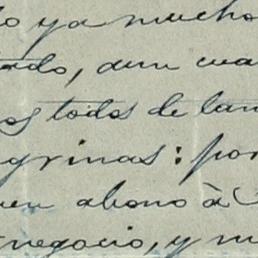 lo ya mucho
tado, aun cua
os todos de lan
grinas: por
en abono à
negocio, y m